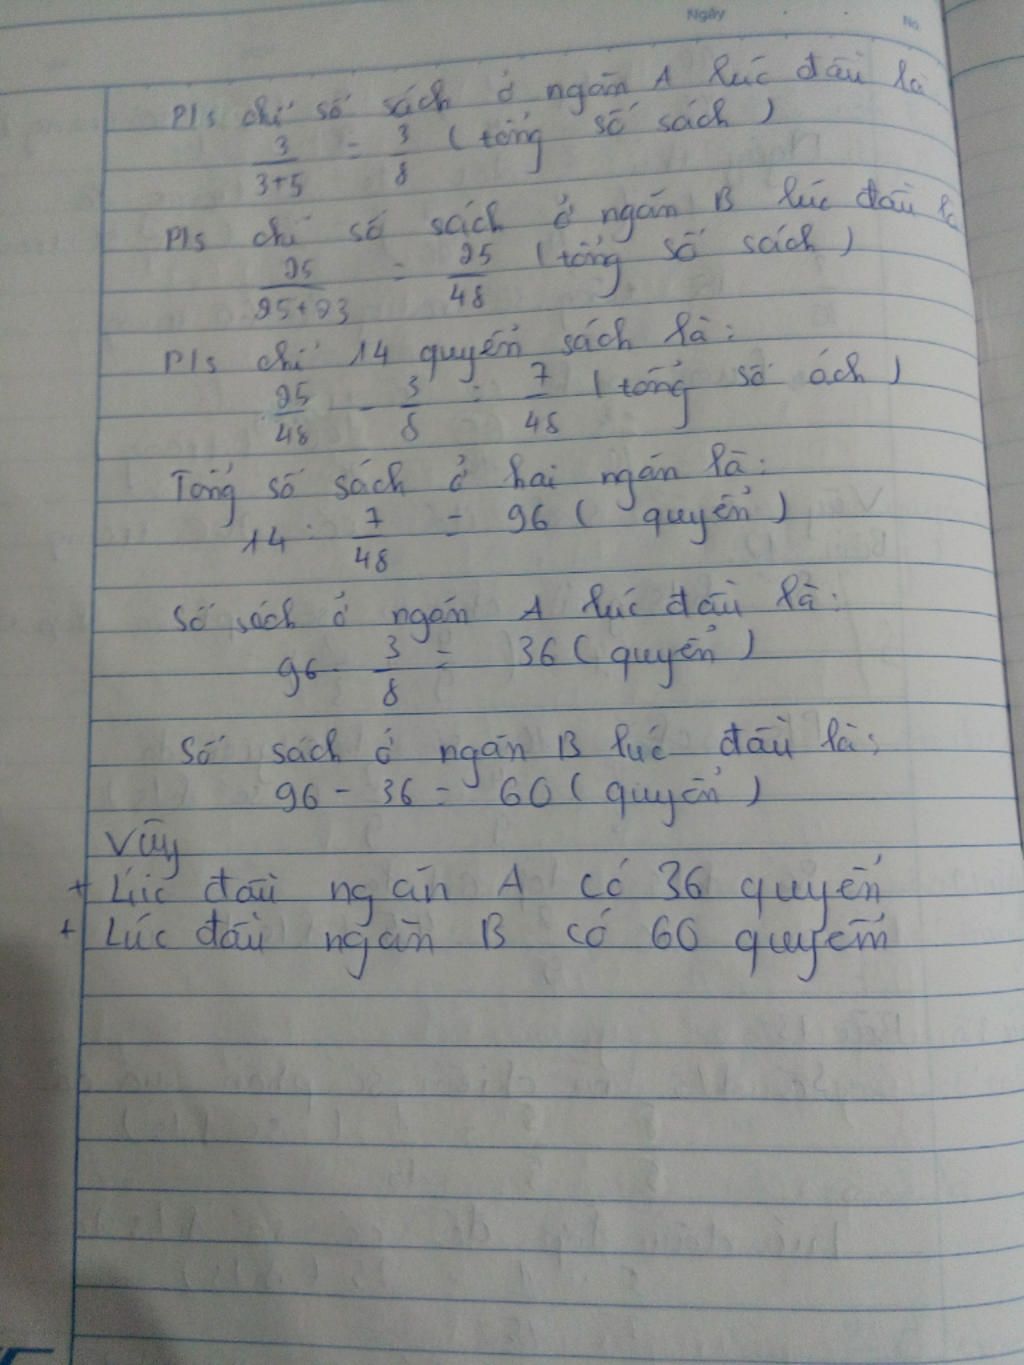 Ngày
No.
Pls chỉ số sách ở ngăn A lúc đầu là
3/3+5 = 3/8 (tổng số sách)
Pls chỉ số sách ở ngăn B lúc đầu là
25/25+23 = 25/48 (tổng số sách)
Pls chỉ 14 quyển sách là:
25/48 - 3/8 = 7/48 (tổng số ách)
Tổng số sách ở hai ngăn là:
14 : 7/48 = 96 (quyển)
Số sách ở ngăn A lúc đầu là:
96 . 3/8 = 36 (quyển)
Số sách ở ngăn B lúc đầu là:
96 - 36 = 60 (quyển)
Vậy
+ Lúc đầu ngăn A có 36 quyển
+ Lúc đầu ngăn B có 60 quyển